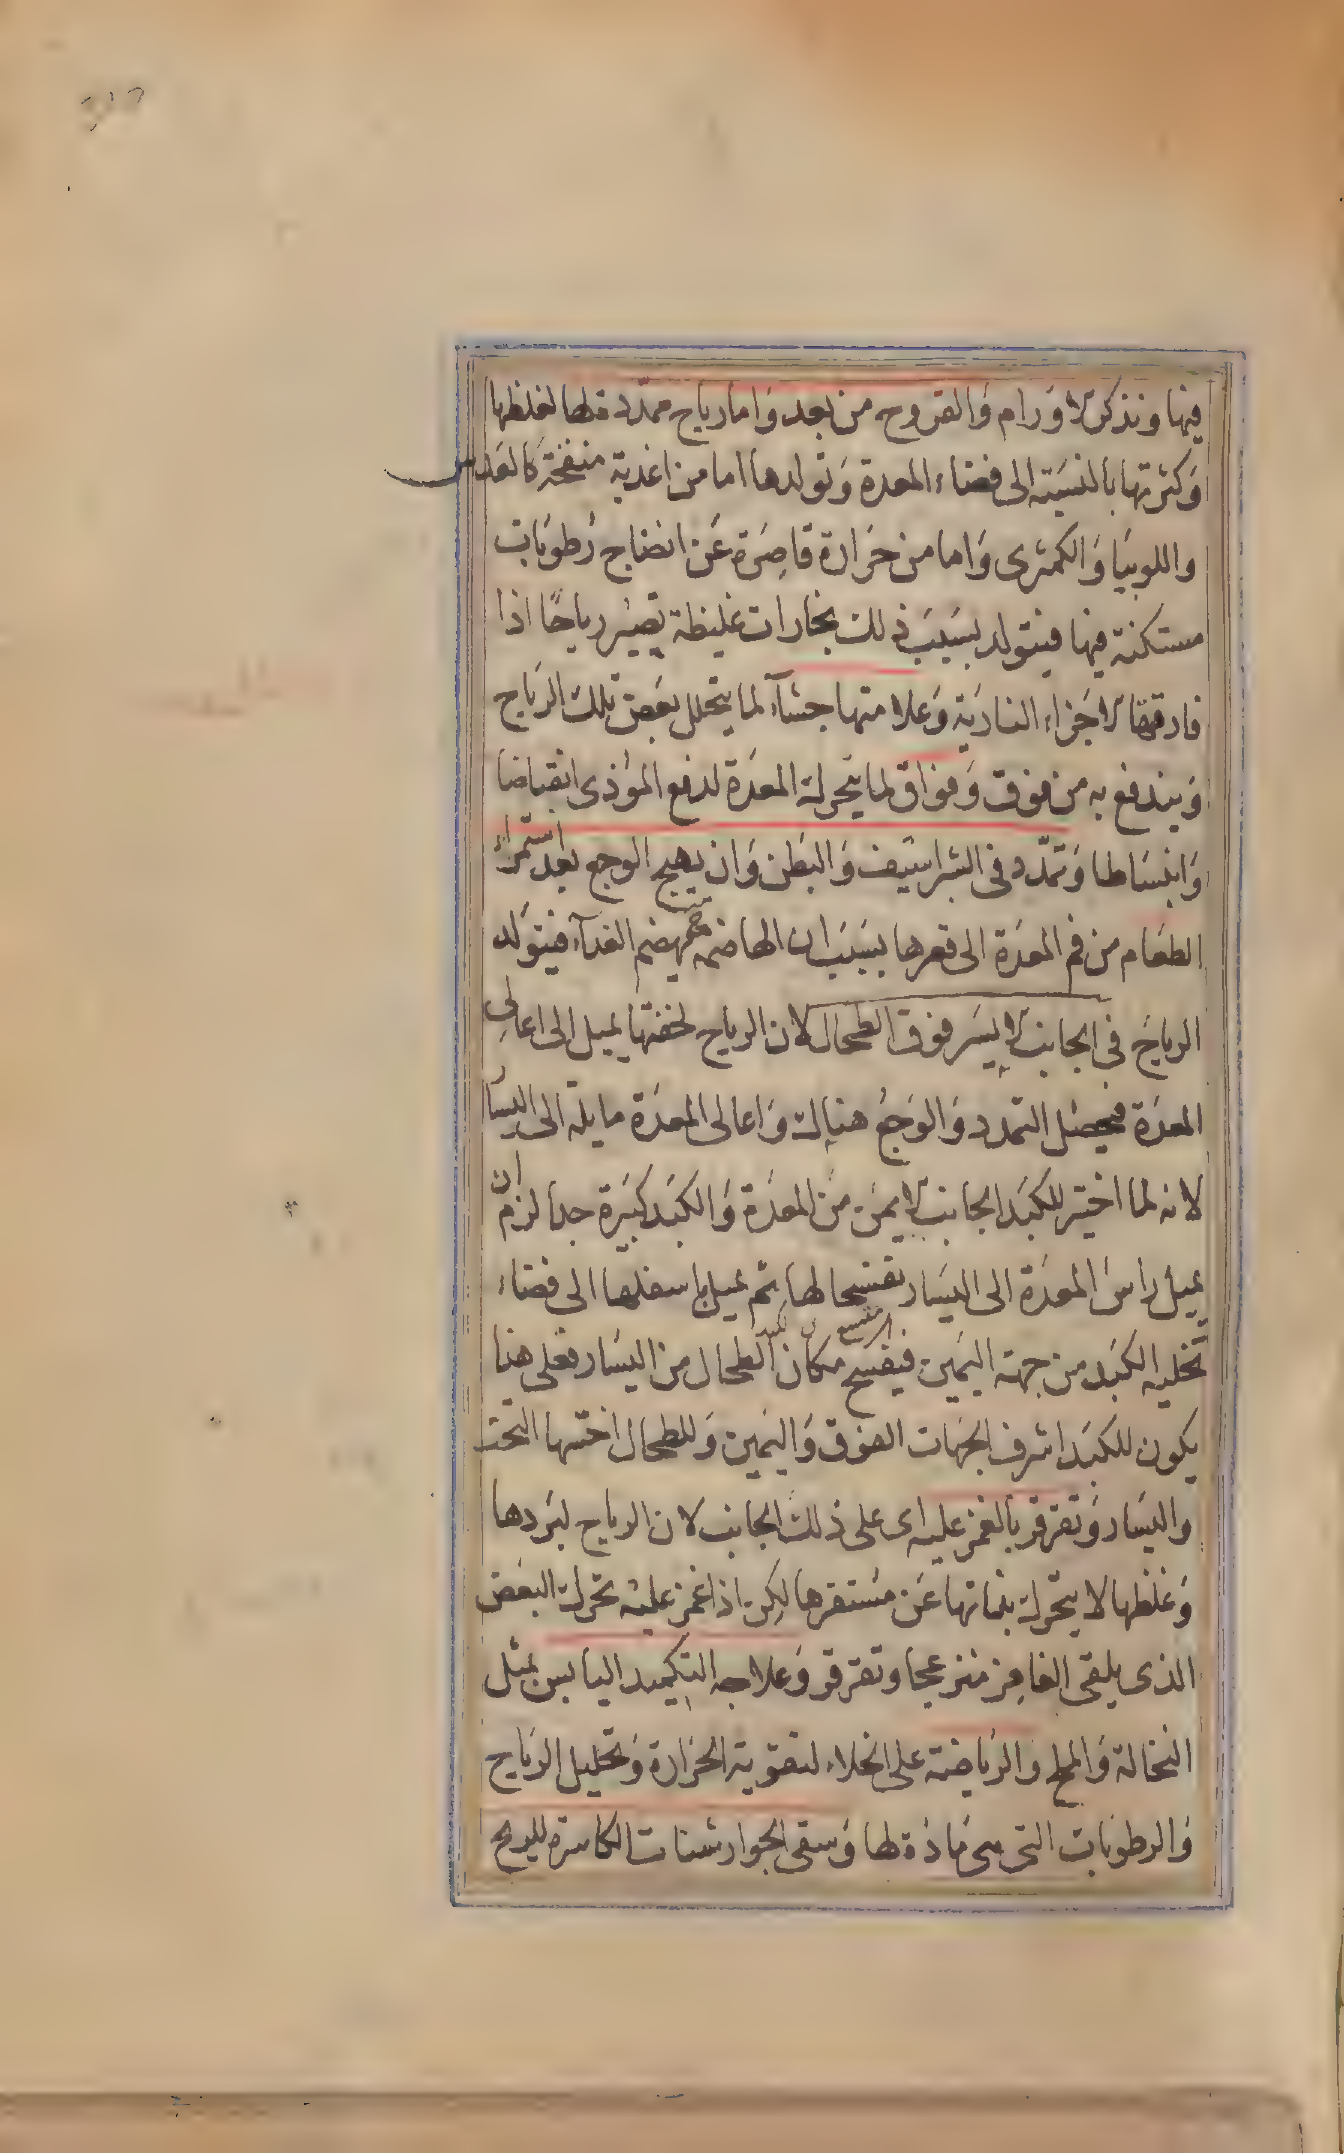 فيها ونذكر الاورام والقروح من بعد واما رياح ممددة لها لغلظها
وكثرتها بالنسبة الى فضاء المعدة وتولدها اما من اغذية منفخة كالعدس
واللوبيا والكمثرى واما من حرارة قاصرة عن انضاج رطوبات
مستكنة فيها فيتولد بسبب ذلك بخارات غليظة تصير رياحًا اذا
فارقها الاجزاء النارية وعلامتها جشآء لما يتحلل بعض تلك الرياح
ويندفع به من فوق وفواق لما يتحرك المعدة لدفع الموذى انقباضا
وانبساطا وتمدّد فى الشراسيف والبطن وان يهيج الوجع بعد استمراء
الطعام من فم المعدة الى قعرها بسبب ان الهاضمة يهضم الغذآء فيتولد
الرياح فى الجانب الايسر فوق الطحال لان الرياح لخفتها يميل الى اعالى
المعدة فيحصل التمدد والوجع هناك واعالى المعدة مايلة الى اليسار
لانه لما اختير للكبد الجانب الايمن من المعدة والكبد كبيرة جدا لزم ان
يميل راس المعدة الى اليسار تفسحا لها ثم يميل باسفلها الى فضاء
تخليه الكبد من جهة اليمين فيفسح مكان الطحال من اليسار فعلى هذا
يكون للكبد اشرف الجهات الفوق واليمين وللطحال اخسها التحت
واليسار وتقرقر بالغمز عليه اى على ذلك الجانب لان الرياح لبردها
وغلظها لا يتحرك بذاتها عن مستقرها لكن اذا غمز عليه تحرك البعض
الذى يلقى الغامز منزعجا وتقرقر وعلاجه التكميد اليابس بمثل
النخالة والملح والرياضة على الخلاء لتقوية الحرارة وتحليل الرياح
والرطوبات التى هى مادة لها وسقى الجوارشنات الكاسرة للريح